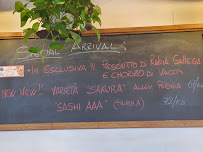 SPECIAL ARRIVAL:
IN ESCLUSIVA!!! PROSCIUTTO DI RUBIA GALLEGA
E CHORIZO DI VACCA
NEW NEW! VARIETÀ "SAKURA"
"SASHI AAA" 92/KG